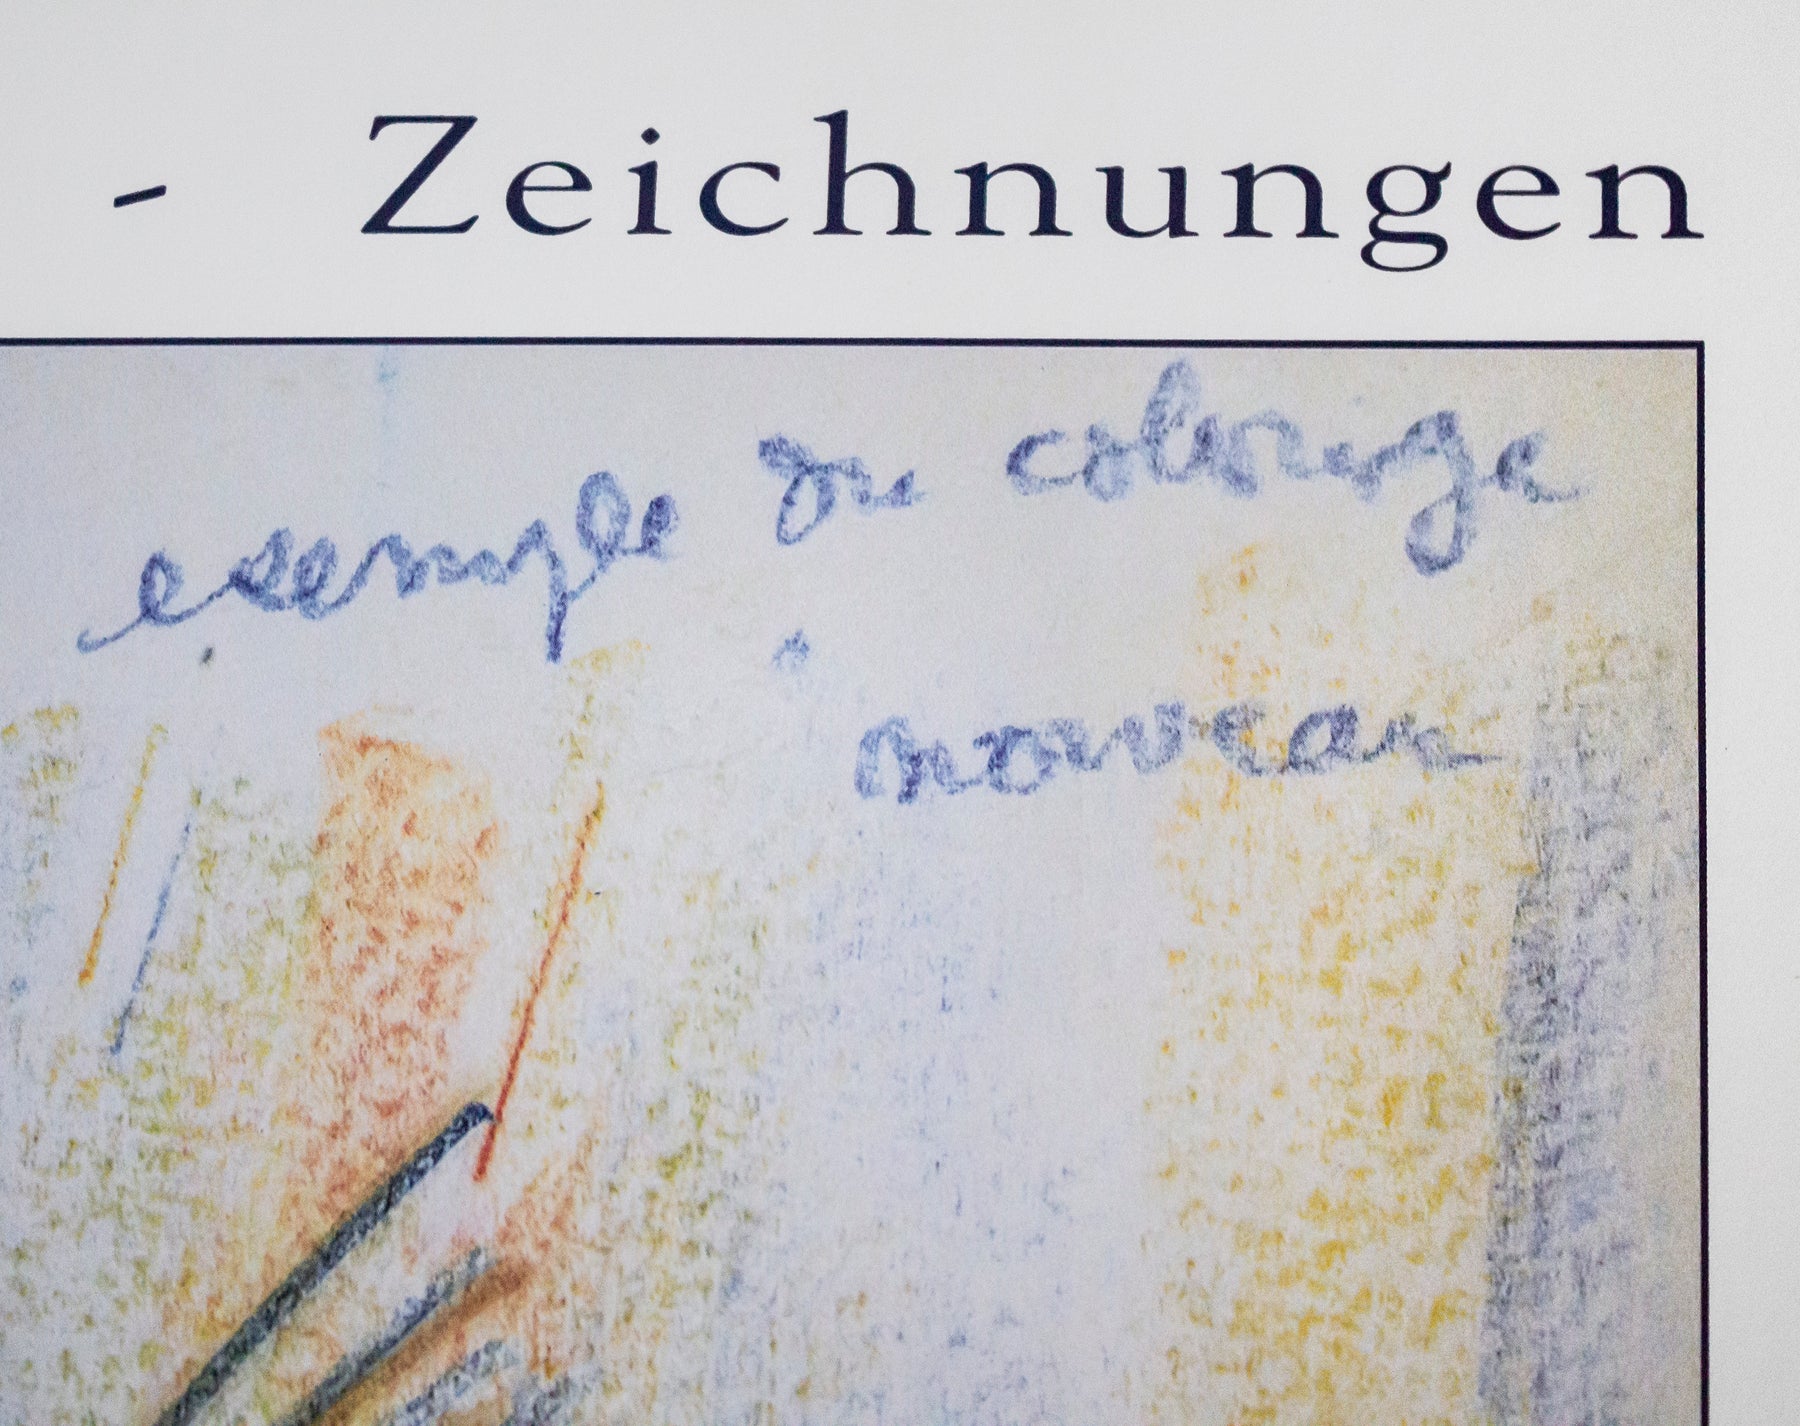 - Zeichnungen
exemple du coloriage
nouveau